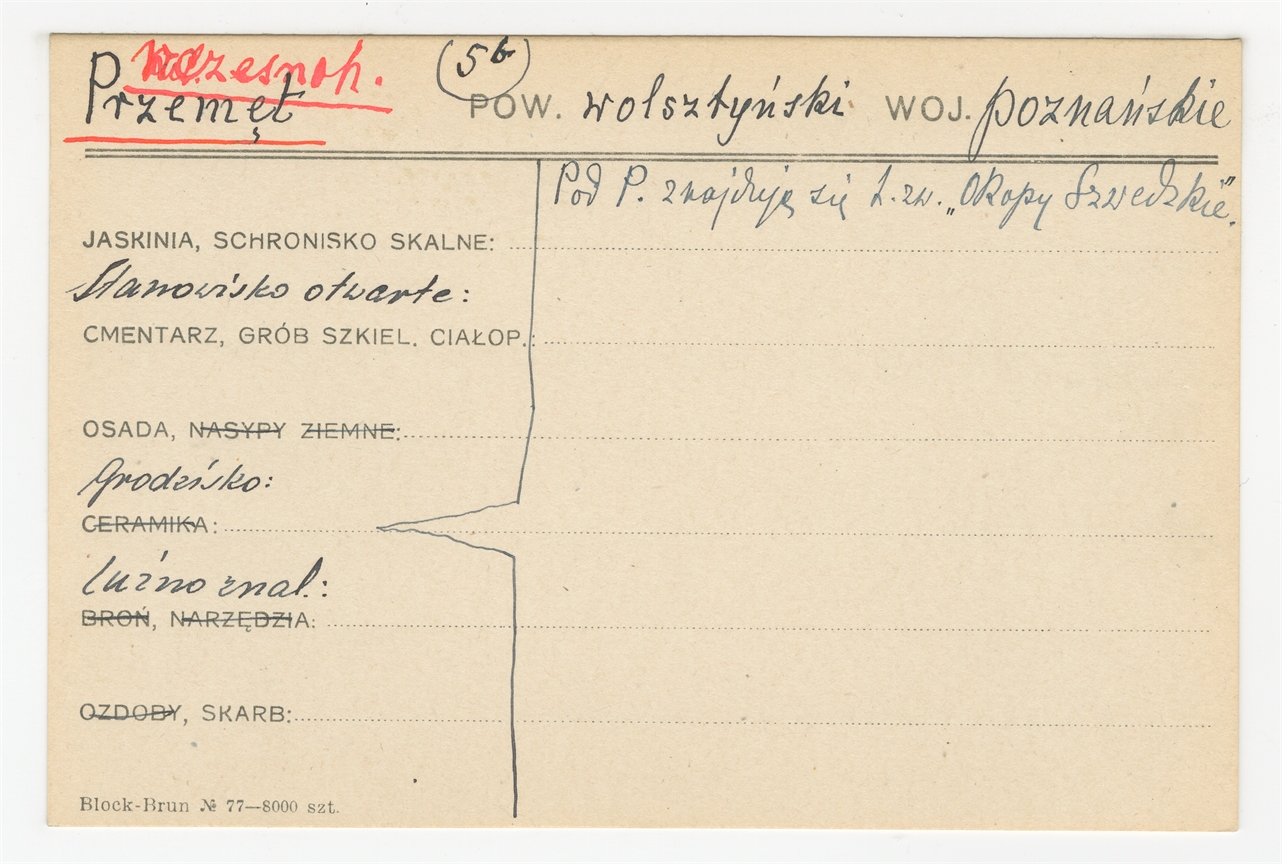 wczesnoh.
(5b)
Przemęt POW. wolsztyński WOJ. poznańskie
Pod P. znajdują się t. zw. „Okopy Szwedzkie".
JASKINIA, SCHRONISKO SKALNE:
Stanowisko otwarte:
CMENTARZ, GRÓB SZKIEL. CIAŁOP.:
OSADA, NASYPY ZIEMNE:
Grodzisko:
CERAMIKA:
Luźno znal.:
BROŃ, NARZĘDZIA:
OZDOBY, SKARB:
Block-Brun № 77—8000 szt.